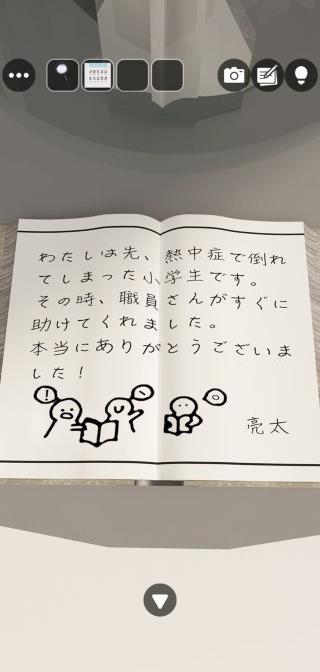 わたしは先、熱中症で倒れ
てしまった小学生です。
その時、職員さんがすぐに
助けてくれました。
本当にありがとうございま
した！
亮太